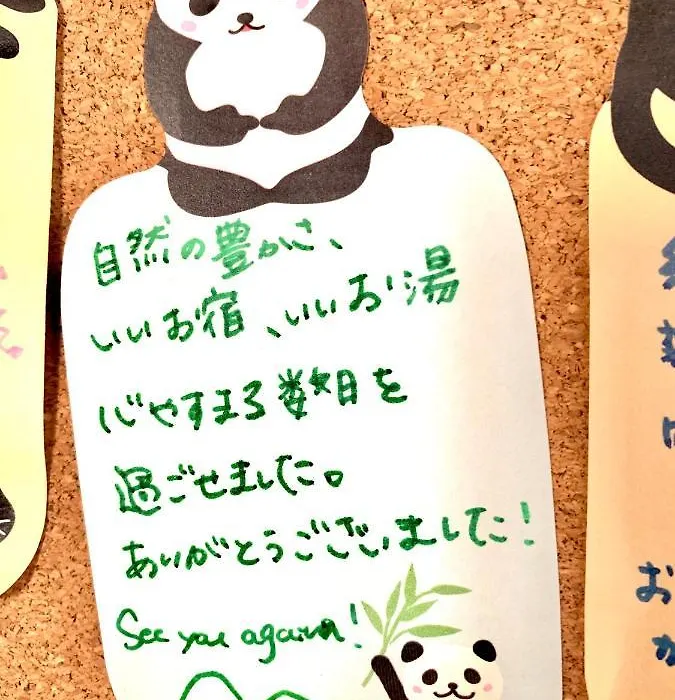 自然の豊かさ、
いいお宿、いいお湯
心やすまる数日を
過ごせました。
ありがとうございました!
See you again!
お
か